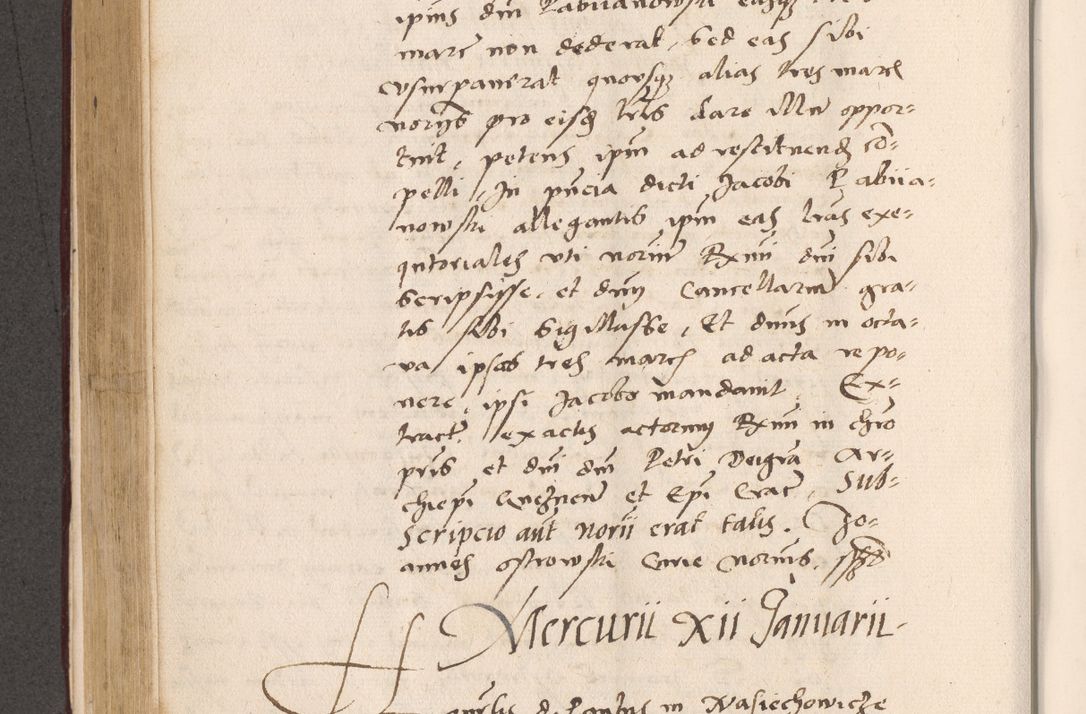 ipius dni Rabiianowski easq
marc non dederat, Sed eas sibi
vsurpauerat quousq alias tres marcs
norijs pro eisd lris dare illu oppor=
tuit, petens ipm ad restituend co=
pelli, In pncia dicti Jacobi Rabiia=
nowski allegantis ipm eas lras exe=
qutoriales uti noriu Rxmi dni sibi
Scripsisse, et dnm Cancellariu gra=
tis sibi Sigillasse, Et dnus in octa=
va ipsas tres marcs ad acta repo=
nere, ipsi Jacobo mandauit, Ex=
tract, ex actis actorum Rxmi in chro
pris et dni dni Petri Deigra Ar=
chiepi Gneznen et Epi Crac, Sub=
scripcio aut norii erat talis. Jo=
annes ostrowski Curie norius, sspd
Mercurii xii Januarii.
in Wasiechowicze